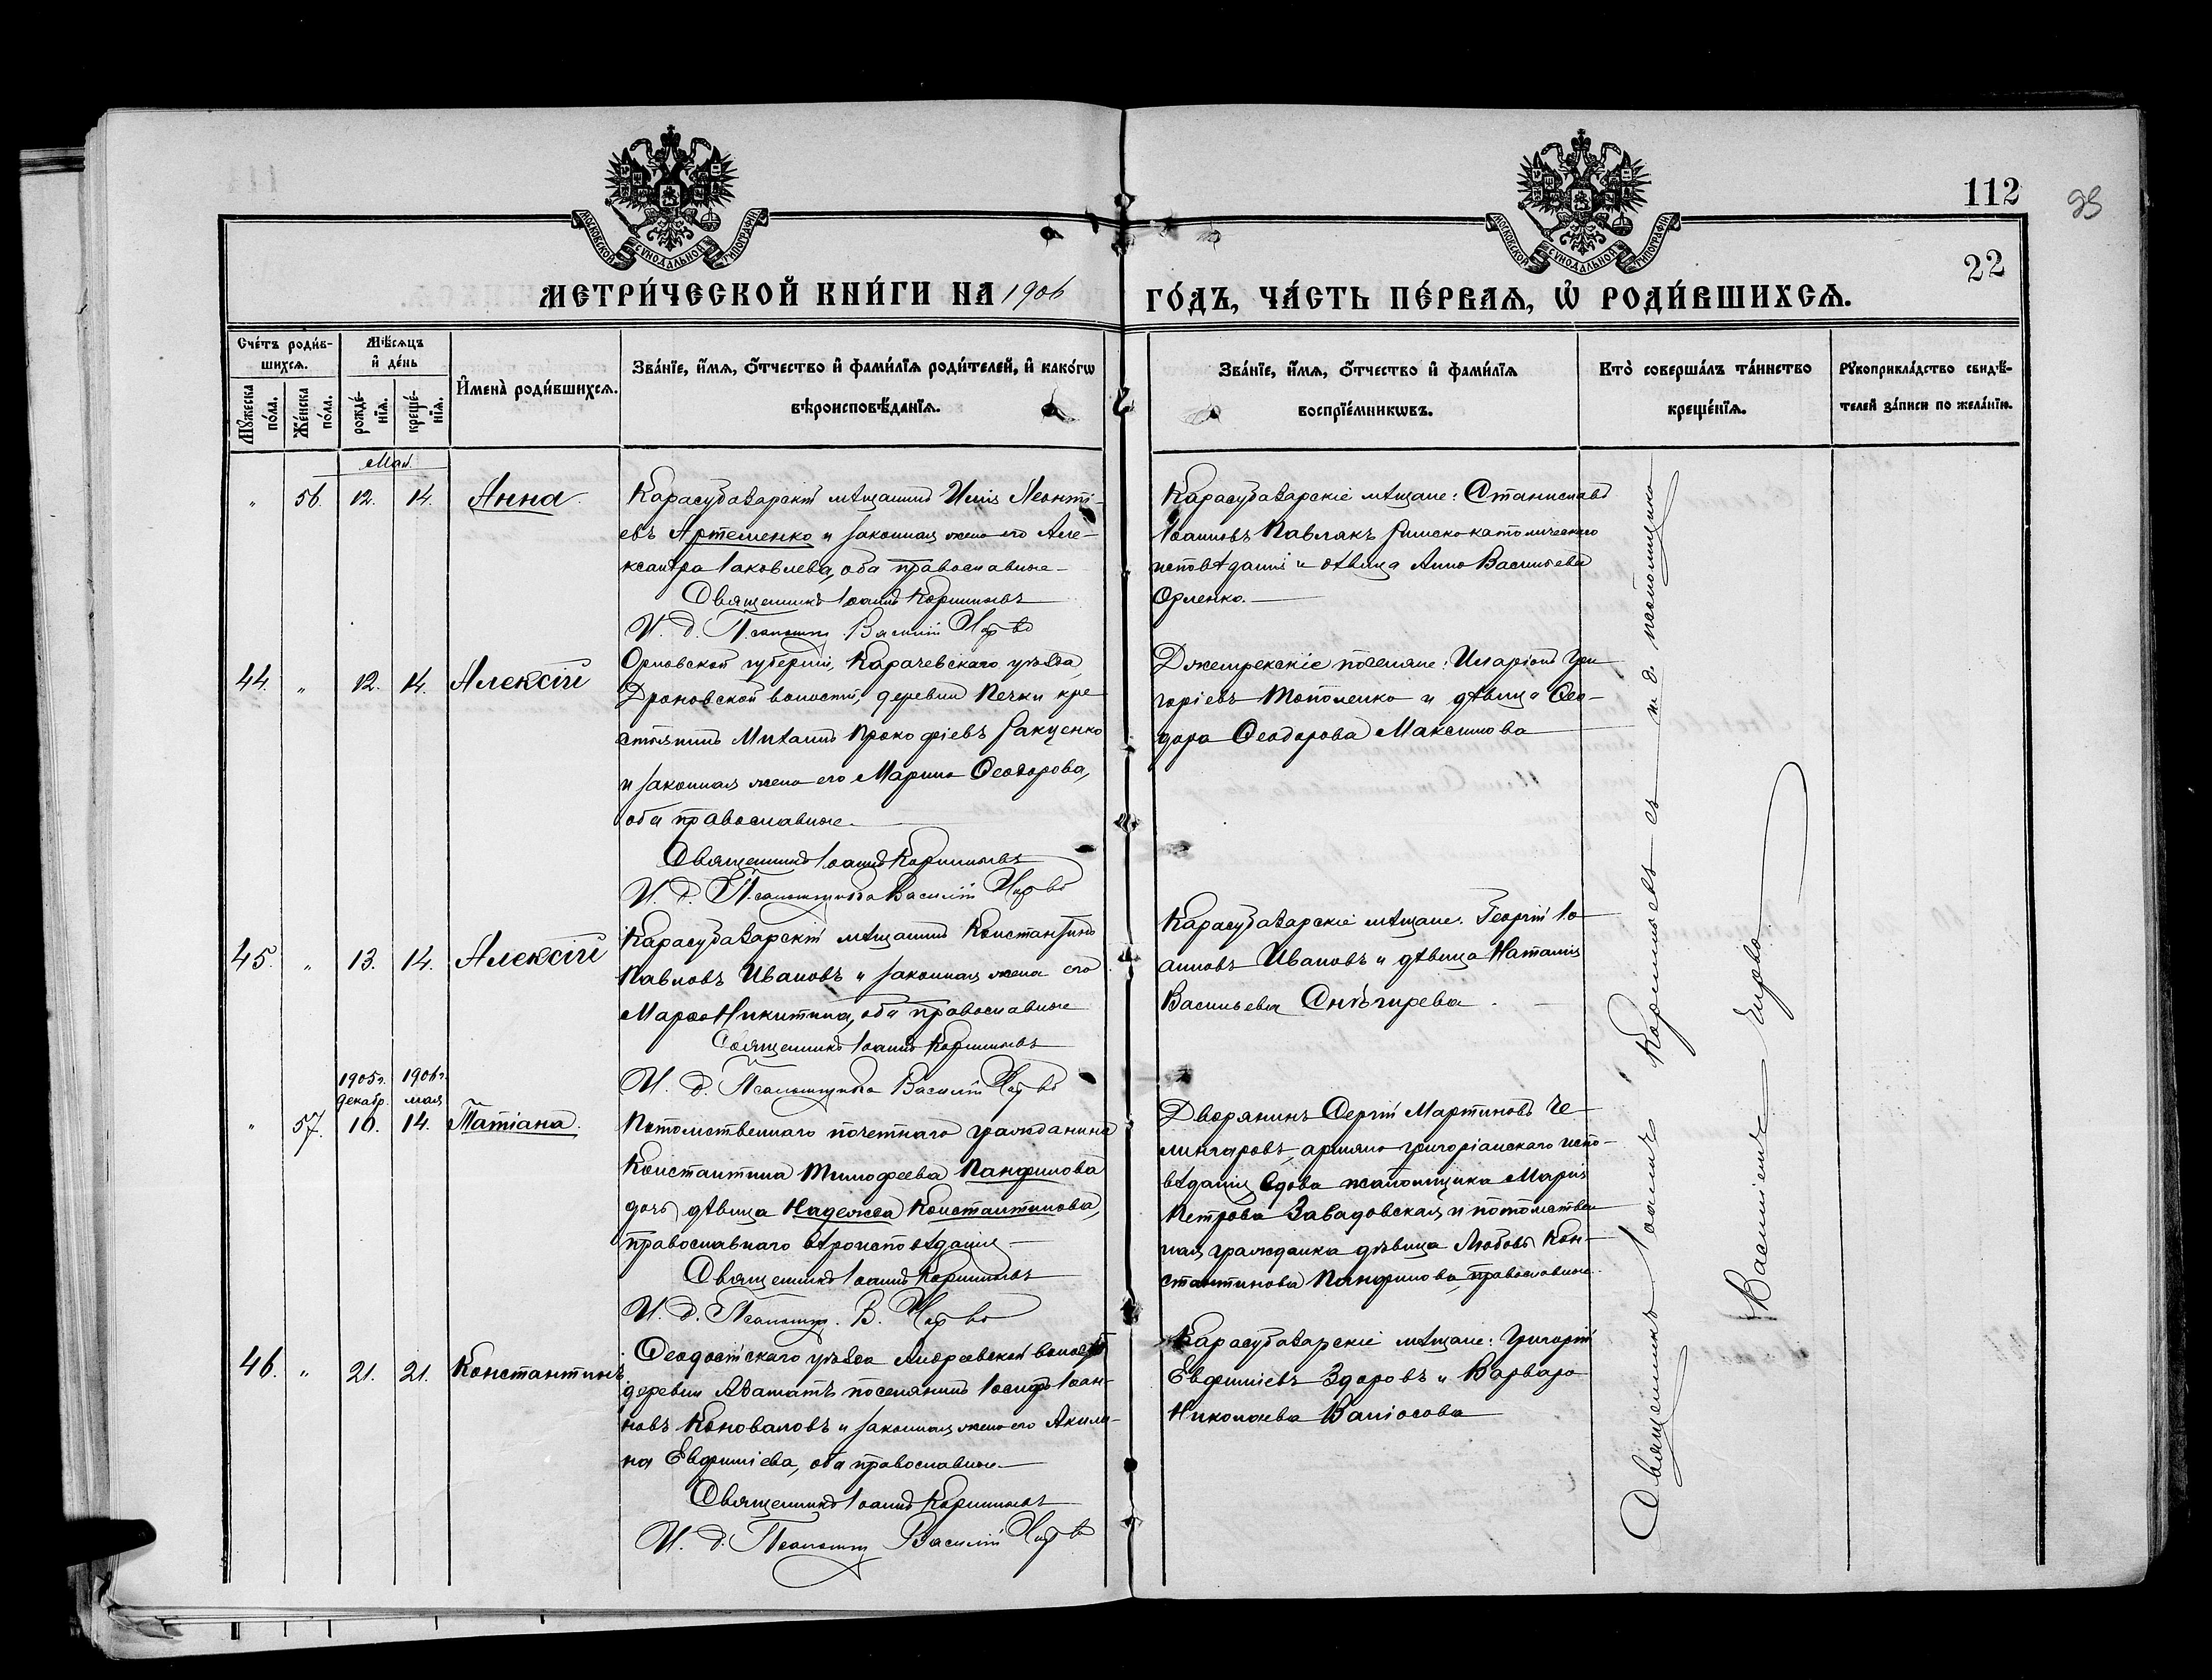 МОСКОВСКОЙ СѴНОДАЛЬНОЙ ТИПОГРАФІИ
МОСКОВСКОЙ СѴНОДАЛЬНОЙ ТИПОГРАФІИ
112
22
МЕТРИ́ЧЕСКОЙ КНИ́ГИ НА 1906
ГО́ДЪ, ЧА́СТЬ ПЕ́РВАѦ, Ѡ҆ РОДИ́ВШИХСѦ.
Сче́тъ роди́в-
шихсѧ.
Мꙋ́жеска по́ла.
Же́нска по́ла.
Мѣ́сѧцъ
и҆ де́нь
рожде́-
нїѧ.
креще́-
нїѧ.
И҆мена̀ роди́вшихсѧ.
Зва́нїе, и҆́мѧ, ѻ҆́тчество и҆ фами́лїѧ роди́телей, и҆ како́гѡ
вѣроисповѣ́данїѧ.
Зва́нїе, и҆́мѧ, ѻ҆́тчество и҆ фами́лїѧ
воспрїе́мникѡвъ.
Кто̀ соверша́лъ та́инство
креще́нїѧ.
Рꙋкоприкла́дство свидѣ́-
телей за́писи по жела́нїю.
Мая
" 56. 12. 14. Анна
Карасубазарскій мѣщанинъ Илія Леонті-
евъ Артеменко и законная жена его Але-
ксандра Іаковлева, оба православные
Священникъ Іоаннъ
И. д. Псаломщ. Василій
Карасубазарскіе мѣщане: Станиславъ
Іоанновъ Павлякъ римско-католическаго
исповѣданія и дѣвица Анна Васильева
Орленко.
44. " 12. 14. Алексій
Орловской губерніи, Карачевскаго уѣзда,
Дроновской волости, деревни Печки кре
стьянинъ Михаилъ Прокофіевъ Ракценко
и законная жена его Марина Ѳеодорова,
оба православные
Священникъ Іоаннъ
И. д. Псаломщика Василій
Поселяне: Иларіонъ Гри
горіевъ Тополенко и дѣвица Ѳео-
дора Ѳеодорова Максимова
45. " 13. 14. Алексій
Карасубазарскій мѣщанинъ Константинъ
Павловъ Ивановъ и законная жена его
Марѳа Никитина, оба православные
Священникъ Іоаннъ
И. д. Псаломщика Василій
Карасубазарскіе мѣщане: Георгій Іо
анновъ Ивановъ и дѣвица Наталія
Васильева Снѣгирева
1905г. декабр. 1906г. мая
" 57. 10. 14. Татіана.
Потомственнаго почетнаго гражданина
Константина Тимофеева Панфилова
дочь дѣвица Надежда Константинова,
православнаго вѣроисповѣданія
Священникъ Іоаннъ
И. д. Псаломщ. В.
Дворянинъ Сергій Мартиновъ Че-
лингаровъ, армяно-григоріанскаго испо-
вѣданія, вдова псаломщика Марія
Петрова Завадовская и потомствен
ная гражданка дѣвица Любовь Кон-
стантинова Панфилова, православные.
46. " 21. 21. Константинъ
Ѳеодосійскаго уѣзда Андреевской волости
деревни поселянинъ Іосифъ Іоан-
новъ Коноваловъ и законная жена его Акили-
на Евфиміева, оба православные
Священникъ Іоаннъ
И. д. Псаломщ. Василій
Карасубазарскіе мѣщане: Григорій
Евфиміевъ Здоровъ и Варвара
Николаева
Священникъ Іоаннъ съ и. д. псаломщика
Василіемъ